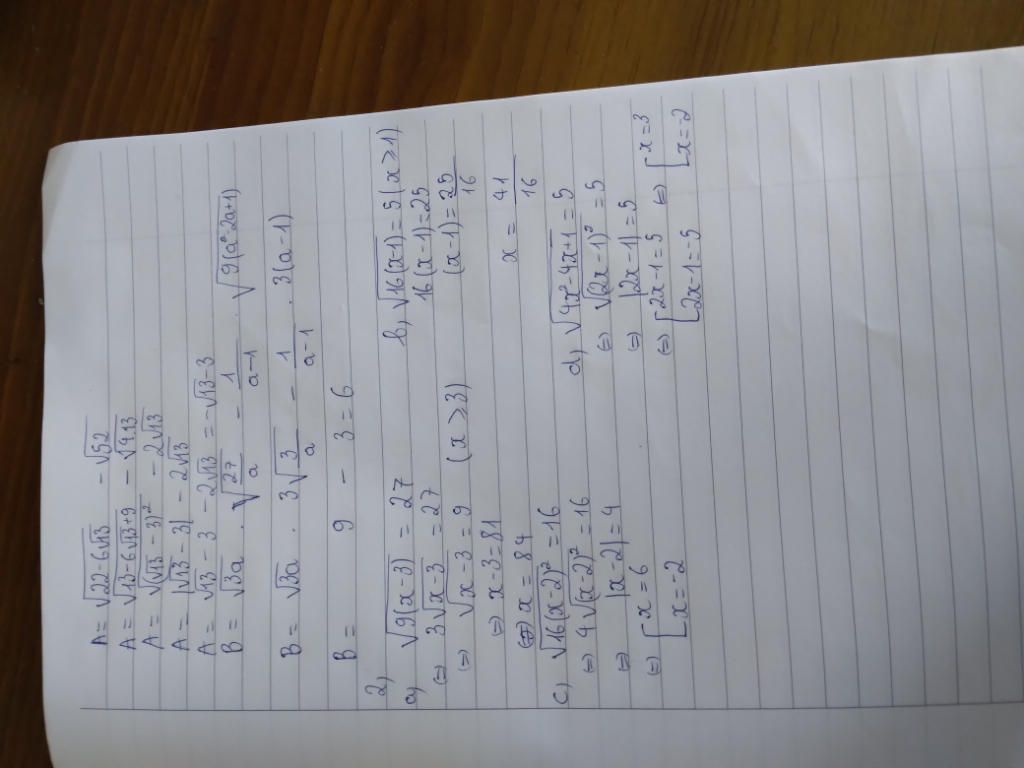 A = √(22-6√13) - √52
A = √(13-6√13+9) - √4.13
A = √(√13 - 3)² - 2√13
A = |√13 - 3| - 2√13
A = √13 - 3 - 2√13 = -√13 - 3
B = √3a . √(27/a) - 1/(a-1) . √9(a²-2a+1)
B = √3a . 3√(3/a) - 1/(a-1) . 3(a-1)
B = 9 - 3 = 6
2)
a) √9(x-3) = 27
(=) 3√(x-3) = 27
(=) √(x-3) = 9 (x ≥ 3)
(=) x-3 = 81
(=) x = 84
b, √16(x-1) = 5 (x ≥ 1)
16(x-1) = 25
(x-1) = 25/16
x = 41/16
c) √16(x-2)² = 16
(=) 4√(x-2)² = 16
(=) |x-2| = 4
(=) [x = 6
[x = -2
d) √(4x²-4x+1) = 5
(=) √(2x-1)² = 5
(=) |2x-1| = 5
(=) [2x-1 = 5 (=) [x = 3
[2x-1 = -5 [x = -2